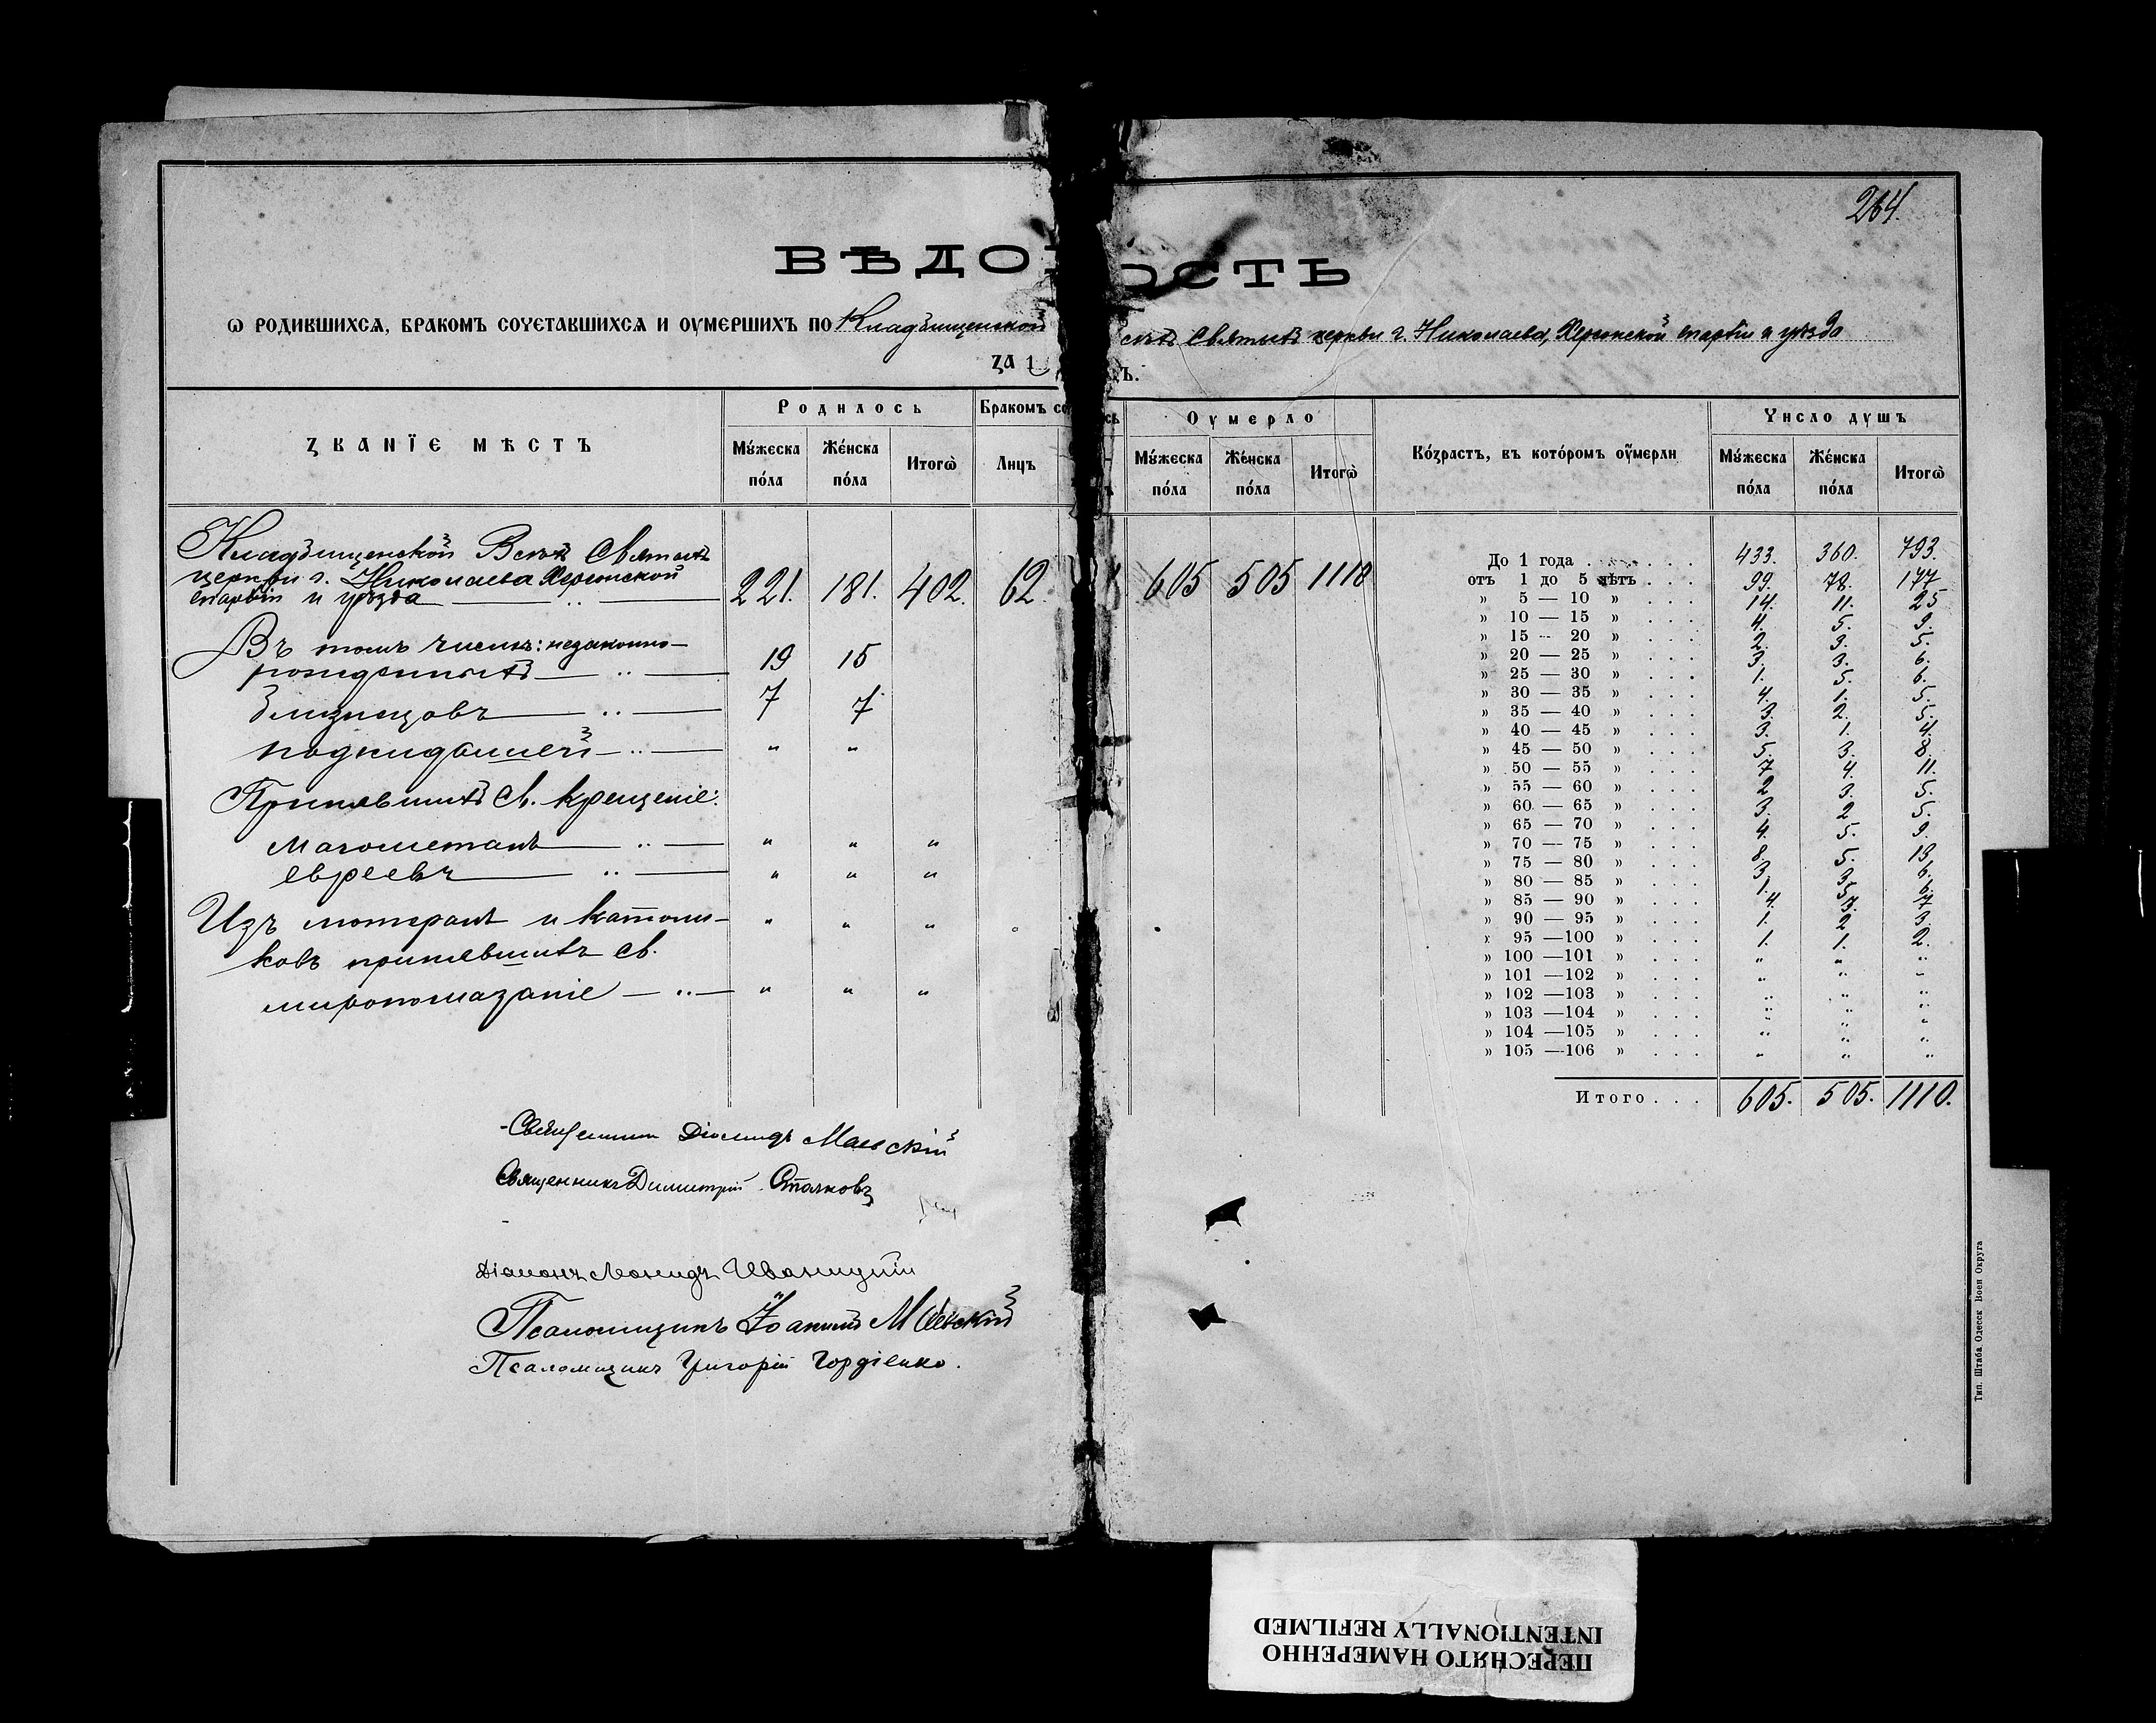 264.
ВѢДО ОСТЬ
Ѡ РОДИВШИХСѦ, БРАКОМЪ СОЧЕТАВШИХСѦ И ОУМЕРШИХЪ ПО Кладбищенской сѣхъ Святыхъ церкви г. Николаева, Херсонской епархіи и уѣзда
за 1 ъ.
ЗВАНЇЕ МѢСТЪ
Родилось
Бракомъ со сь
Оумерло
Во́зрастъ, въ кото́ромъ оу҆́мерли
Число душъ
Мꙋ́жеска по́ла
Же́нска по́ла
Итогѡ̀
Лицъ
Мꙋ́жеска по́ла
Же́нска по́ла
Итогѡ̀
Мꙋ́жеска по́ла
Же́нска по́ла
Итогѡ̀
Кладбищенской Всѣхъ Святыхъ
церкви г. Николаева Херсонской
епархіи и уѣзда 221. 181. 402. 62. 605 505 1110
Въ томъ числѣ: незаконно-
рожденныхъ 19 15
близнецовъ 7 7
подкидышей " "
Принявшихъ Св. Крещеніе:
магометанъ " " "
евреевъ " " "
Изъ лютеранъ и католи- " " "
ковъ принявшихъ св.
миропомазаніе " " "
До 1 года . . . . . . . 433. 360. 793.
отъ 1 до 5 лѣтъ . . . 99. 78. 177
» 5 — 10 » . . . 14. 11. 25
» 10 — 15 » . . . 4. 5. 9.
» 15 — 20 » . . . 2. 3. 5.
» 20 — 25 » . . . 3. 3. 6.
» 25 — 30 » . . . 1. 5. 6.
» 30 — 35 » . . . 4. 1. 5.
» 35 — 40 » . . . 3. 2. 5.
» 40 — 45 » . . . 3. 1. 4.
» 45 — 50 » . . . 5. 3. 8.
» 50 — 55 » . . . 7 4. 11.
» 55 — 60 » . . . 2 3. 5.
» 60 — 65 » . . . 3. 2 5.
» 65 — 70 » . . . 4. 5. 9.
» 70 — 75 » . . . 8. 5. 13.
» 75 — 80 » . . . 3. 3. 6.
» 80 — 85 » . . . 1. 5. 6.
» 85 — 90 » . . . 4. 3. 7
» 90 — 95 » . . . 1. 2. 3.
» 95 —100 » . . . 1. 1. 2.
» 100 —101 » . . . " " "
» 101 —102 » . . . " " "
» 102 —103 » . . . " " "
» 103 —104 » . . . " " "
» 104 —105 » . . . " " "
» 105 —106 » . . . " " "
Итого . . . 605. 505. 1110.
Священникъ Діомидъ Маевскій
Священникъ Димитрій Стайковъ
Діаконъ Леонидъ Иваницкій
Псаломщикъ Іоакимъ Маевскій
Псаломщикъ Григорій Гордіенко.
Тип. Штаба Одесск Воен Округа
ПЕРЕСНЯТО НАМЕРЕННО
INTENTIONALLY REFILMED